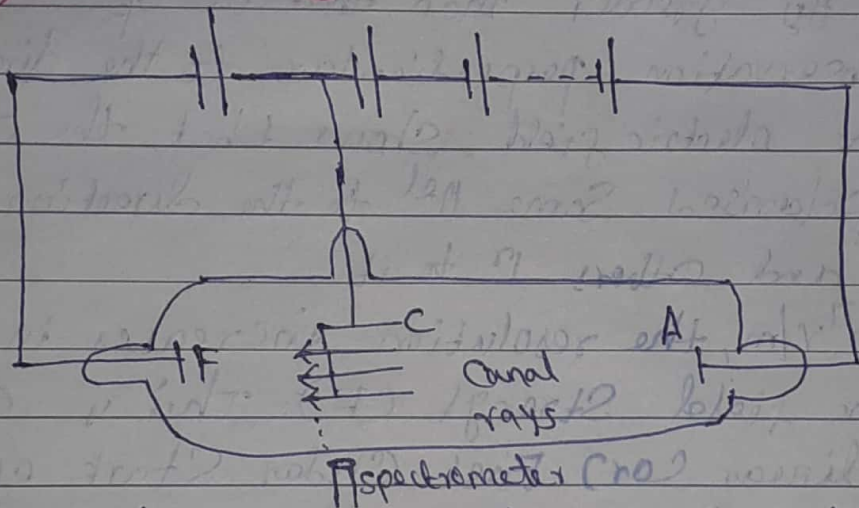 C
A
F
Canal
rays
spectrometer